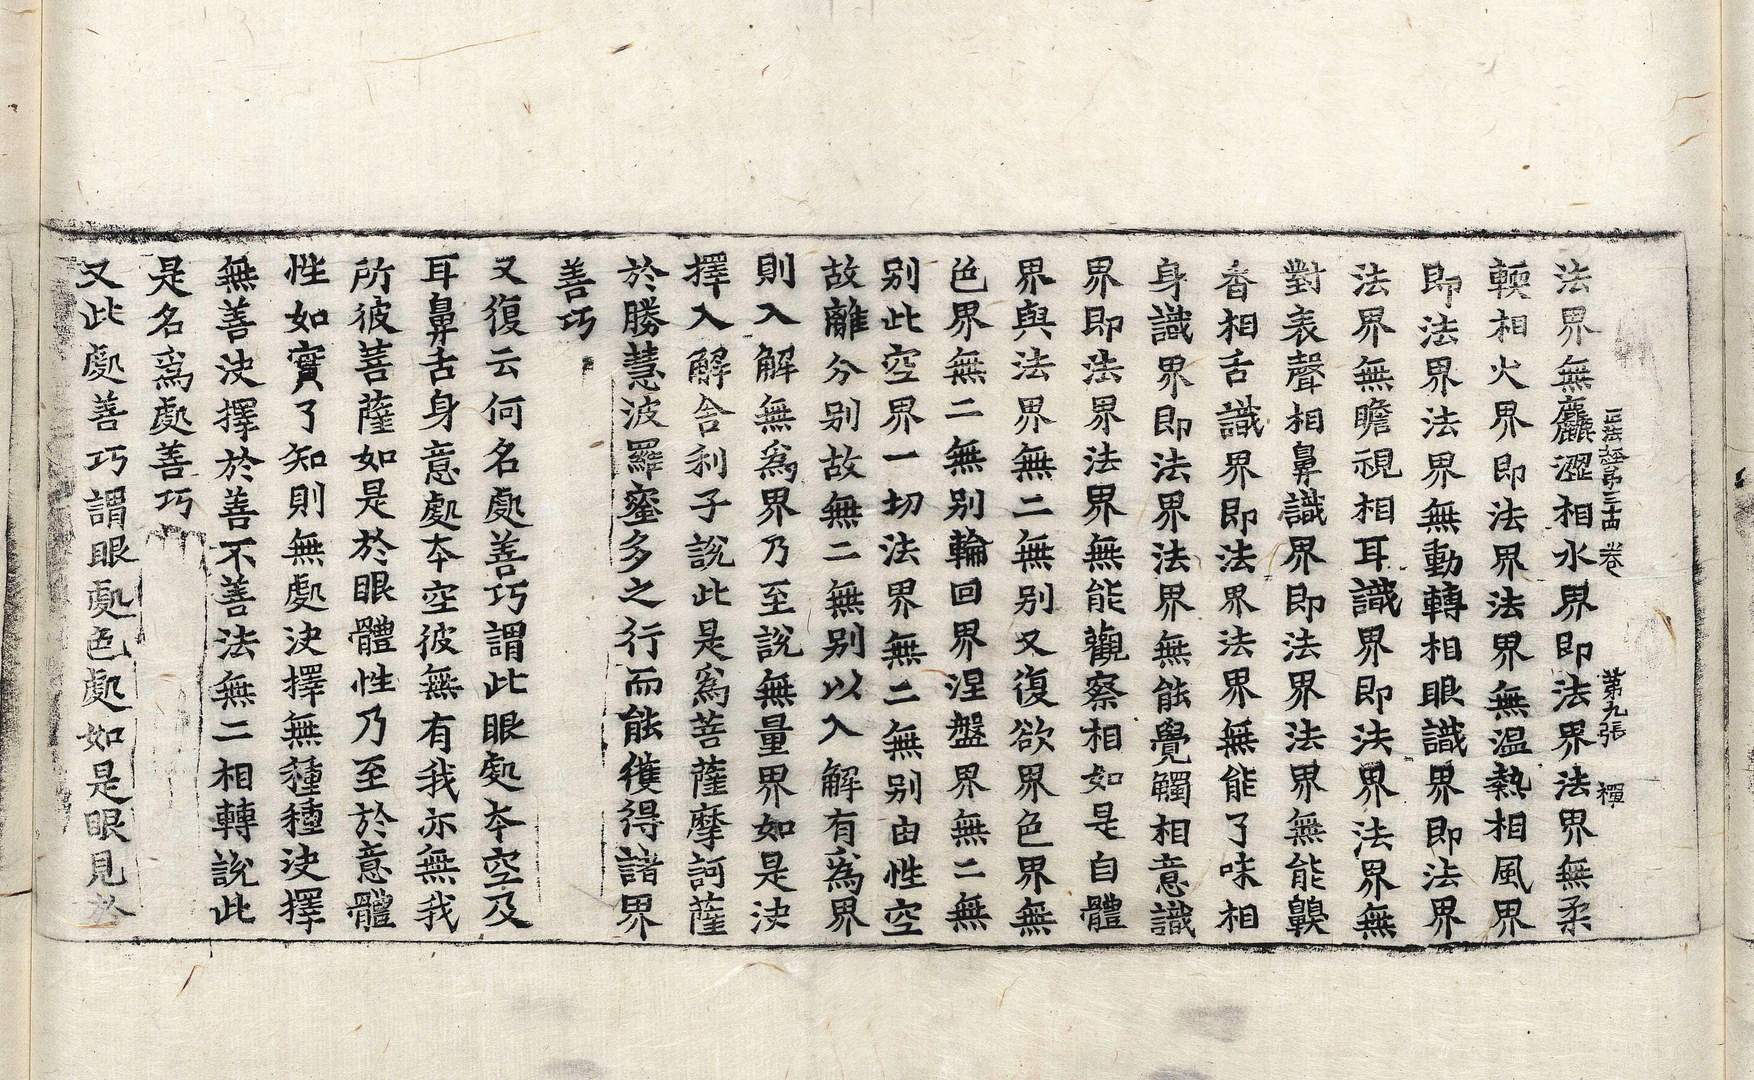 正法經第三十四卷 第九張 禪
法界無麤澀相水界即法界法界無柔
輭相火界即法界法界無温熱相風界
即法界法界無動轉相眼識界即法界
法界無瞻視相耳識界即法界法界無
對表聲相鼻識界即法界法界無能齅
香相舌識界即法界法界無能了味相
身識界即法界法界無能覺觸相意識
界即法界法界無能觀察相如是自體
界與法界無二無别又復欲界色界無
色界無二無别輪回界涅盤界無二無
别此空界一切法界無二無别由性空
故離分别故無二無别以入解有爲界
則入解無爲界乃至説無量界如是決
擇入解舍利子說此是爲菩薩摩訶薩
於勝慧波羅蜜多之行而能獲得諸界
善巧
又復云何名處善巧謂此眼處本空及
耳鼻舌身意處本空彼無有我亦無我
所彼菩薩如是於眼體性乃至於意體
性如實了知則無處決擇無種種決擇
無善決擇於善不善法無二相轉說此
是名爲處善巧
又此處善巧謂眼處色處如是眼見於